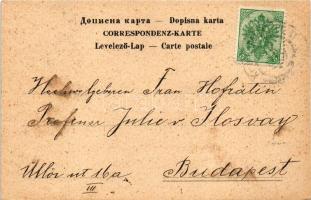 Дописна карта — Dopisna karta
CORRESPONDENZ-KARTE
Levelező-Lap — Carte postale
Frau Hofrätin
Professor Julie v. Ilosvay
Üllői út 16a
III
Budapest